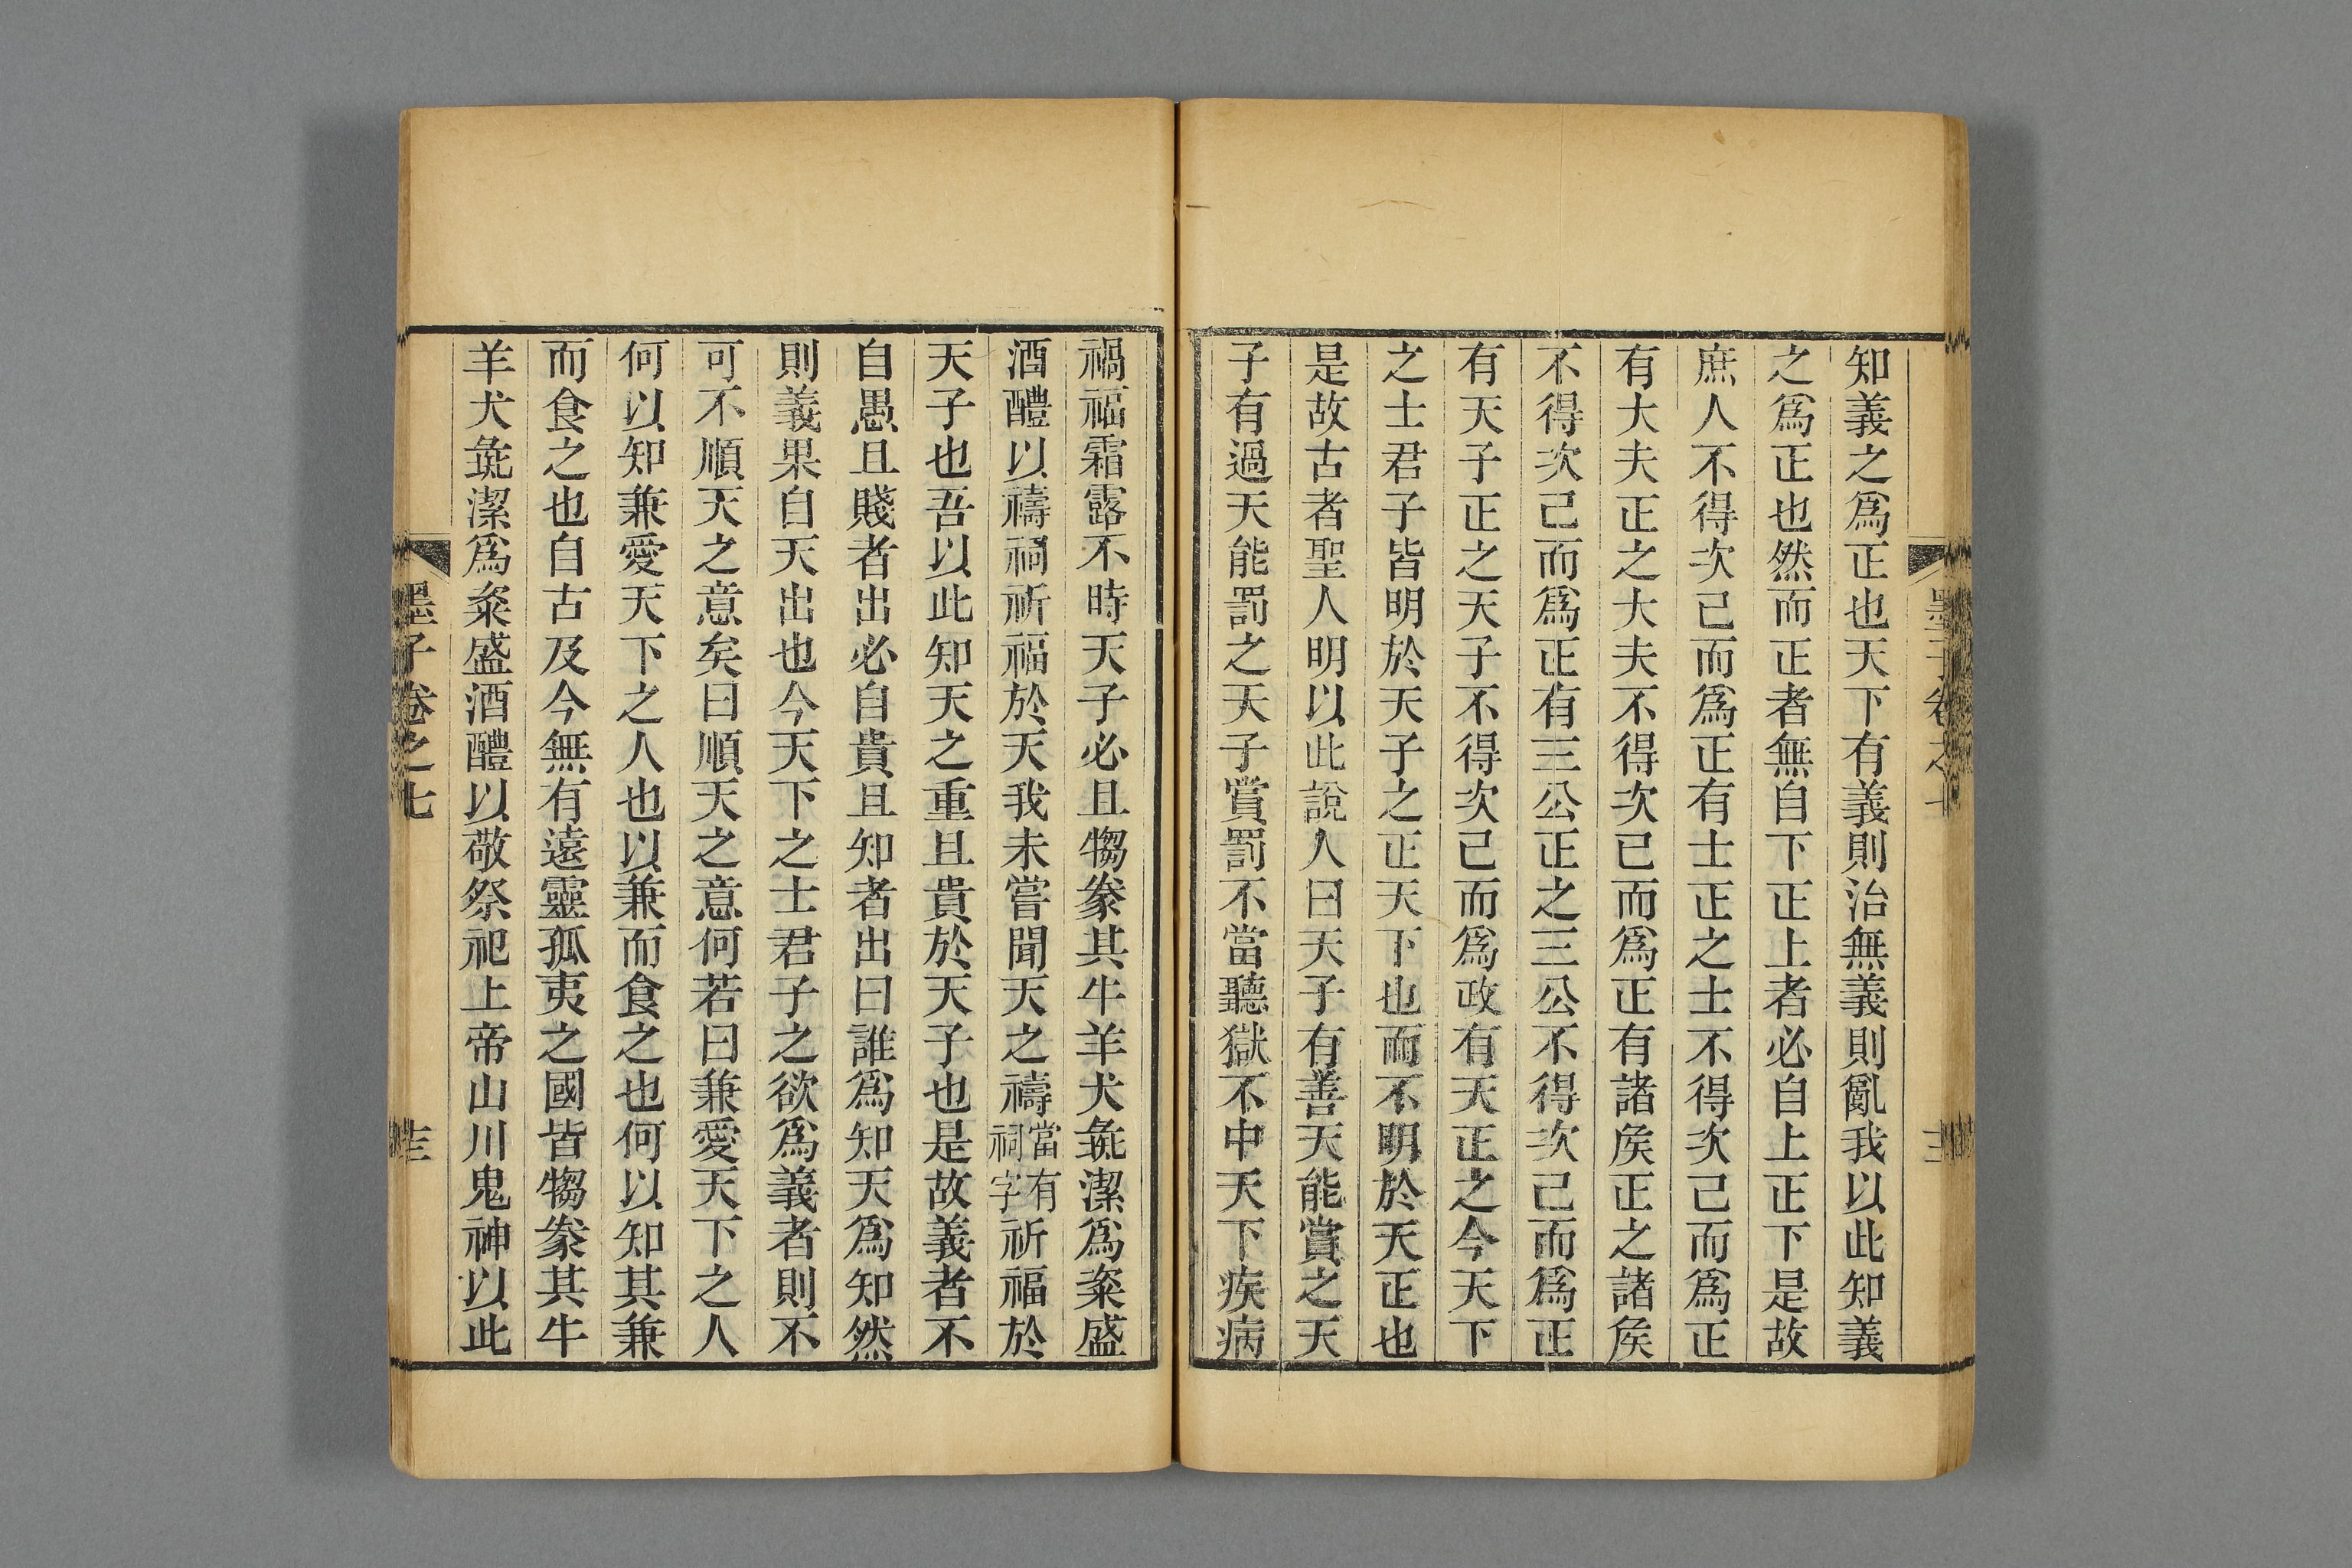 知義之爲正也天下有義則治無義則亂我以此知義
之爲正也然而正者無自下正上者必自上正下是故
庶人不得次己而爲正有士正之士不得次己而爲正
有大夫正之大夫不得次已而爲正有諸矦正之諸矦
不得次己而爲正有三公正之三公不得次己而爲正
有天子正之天子不得次己而爲政有天正之今天下
之士君子皆明於天子之正天下也而不明於天正也
是故古者聖人明以此說人曰天子有善天能賞之天
子有過天能罰之天子賞罰不當聽獄不中天下疾病
禍福霜露不時天子必且犓豢其牛羊犬彘潔爲粢盛
酒醴以禱祠祈福於天我未嘗聞天之禱當有祠字祈福於
天子也吾以此知天之重且貴於天子也是故義者不
自愚且賤者出必自貴且知者出曰誰爲知天爲知然
則義果自天出也今天下之士君子之欲爲義者則不
可不順天之意矣曰順天之意何若曰兼愛天下之人
何以知兼愛天下之人也以兼而食之也何以知其兼
而食之也自古及今無有遠靈孤夷之國皆犓豢其牛
羊犬彘潔爲粢盛酒醴以敬祭祀上帝山川鬼神以此
墨子卷之七